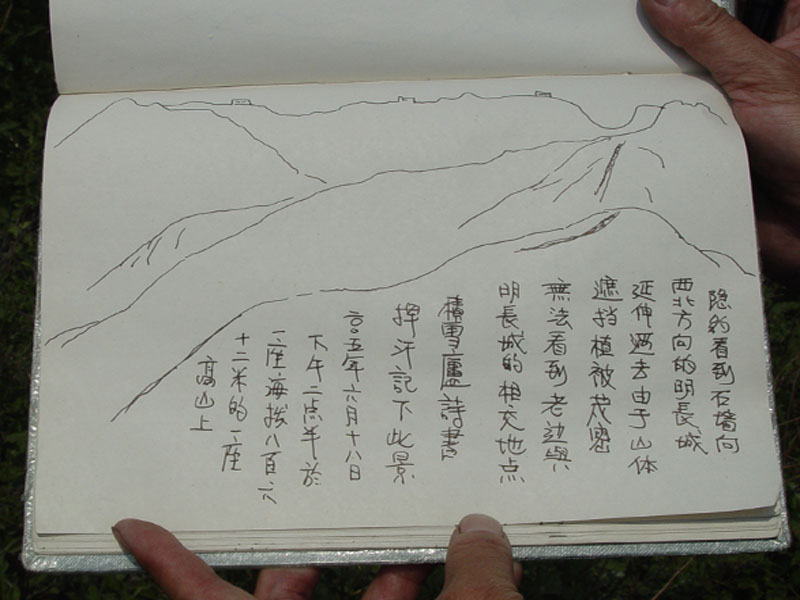 隐约看到石墙向
西北方向的明長城
延伸过去由于山体
遮挡植被茂密
無法看到老边與
明長城的相交地点
積雪廬詩書
捍汗記下此景
二〇〇五年六月十八日
下午二点半於
一座海拨八百六
十二米的一座
高山上